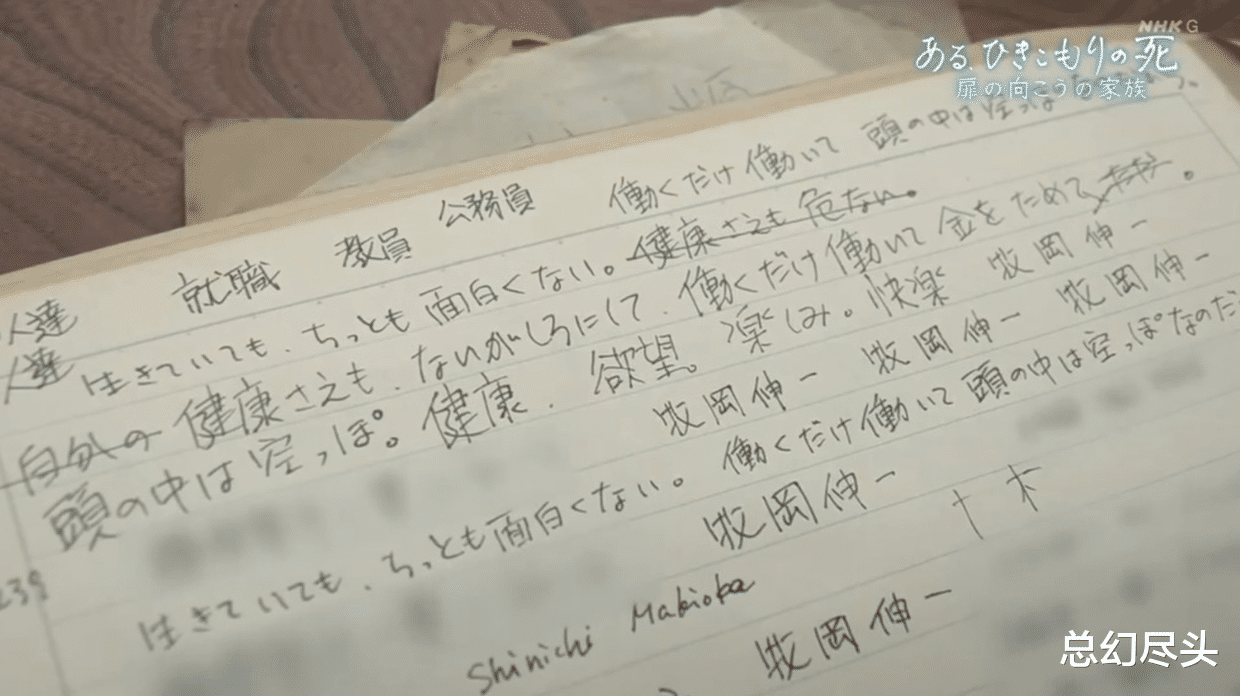 NHK G
ある、ひきこもりの死
扉の向こうの家族
人達 就職 教員 公務員 働くだけ働いて 頭の中は空っぽ
人達 生きていても、ちっとも面白くない。健康さえも危ない。
自分の 健康さえも、ないがしろにして、働くだけ働いて金をためて
頭の中は空っぽ。健康、欲望。楽しみ。快楽 牧岡伸一
牧岡伸一 牧岡伸一 牧岡伸一
生きていても、ちっとも面白くない。働くだけ働いて頭の中は空っぽなのだ
牧岡伸一
Shinichi Makioka
牧岡伸一
总幻尽头